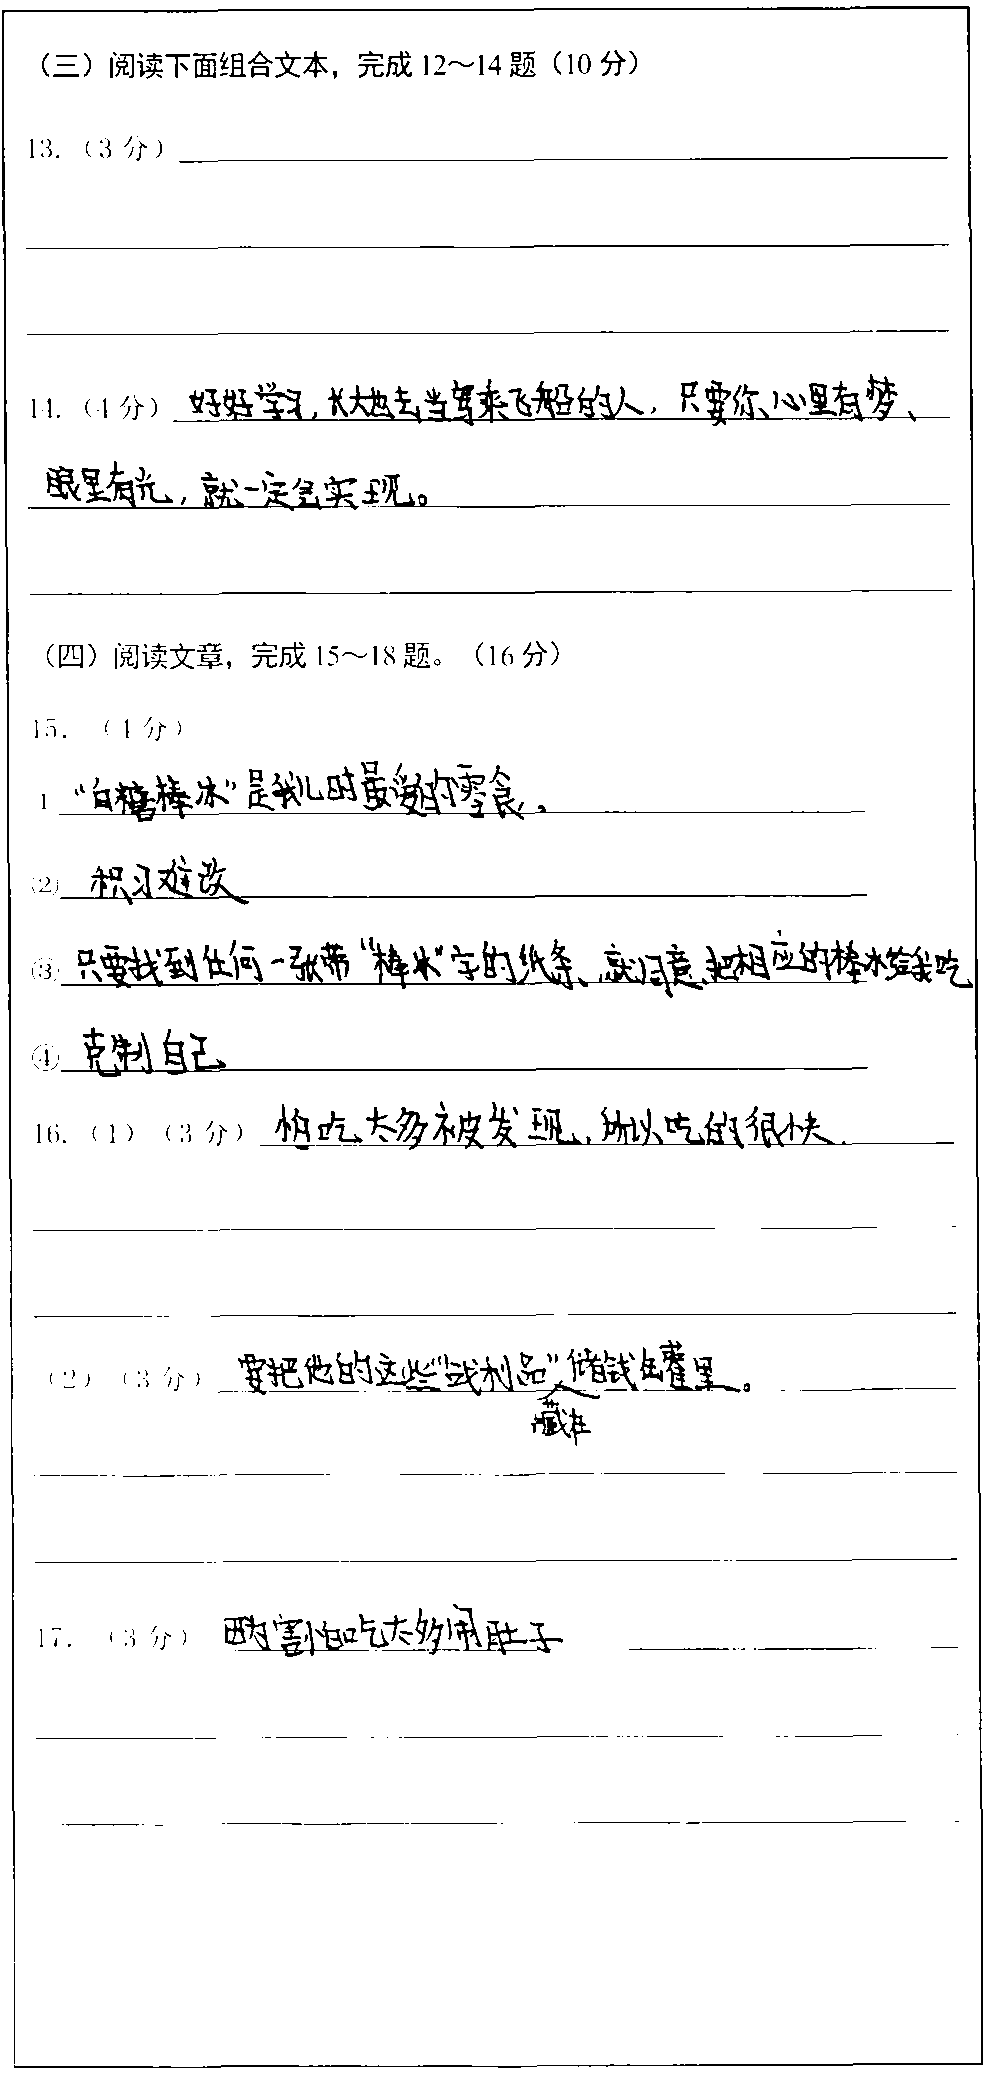 （三）阅读下面组合文本，完成12～14题（10分）
13.（3分）
14.（4分）好好学习，长大也去当驾乘飞船的人，只要你心里有梦、
眼里有光，就一定会实现。
（四）阅读文章，完成15～18题。（16分）
15.（4分）
1 “白糖棒冰”是我儿时最爱的零食。
(2) 积习难改
③ 只要找到任何一张带“棒冰”字的纸条、就同意把相应的棒冰给我吃
④ 克制自己
16.（1）（3分）怕吃太多被发现，所以吃的很快.
（2）（3分）要把他的这些“战利品”藏在储钱罐里。
17.（3分）害怕吃太多闹肚子